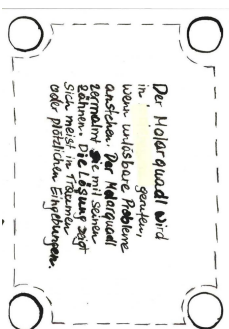 Der Molarquadl wird
in gerufen,
wenn unlösbare Probleme
anstehen. Der Molarquadl
zermalmt sie mit seinen
Zähnen. Die Lösung zeigt
sich meist in Träumen
oder plötzlichen Eingebungen.